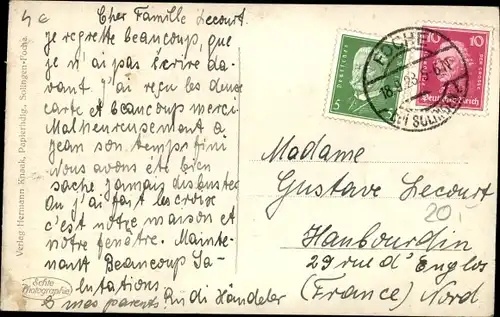 4 c
Cher Famille Lecourt.
Je regrette beaucoup, que
je n'ai pas écrire da-
vant. J'ai reçu les deux
carte et beaucoup merci
Malheureusement à
Jean son temps fini
Nous avons été bien
sache jamais
On j'ai fait les croix
c'est notre maison et
notre fenêtre. Mainte-
nant Beaucoup Sa-
lutations.
mes parents Rudi Händeler
Verlag Hermann Knaak, Papierhdlg., Solingen-Foche.
Echte
Photographie
5
10 10
Deutsches Reich
FOCHE
18.9.28
SOLINGEN
Madame
Gustave Lecourt
20,-
Hanbourdin
29 rue d'Englos
(France) Nord